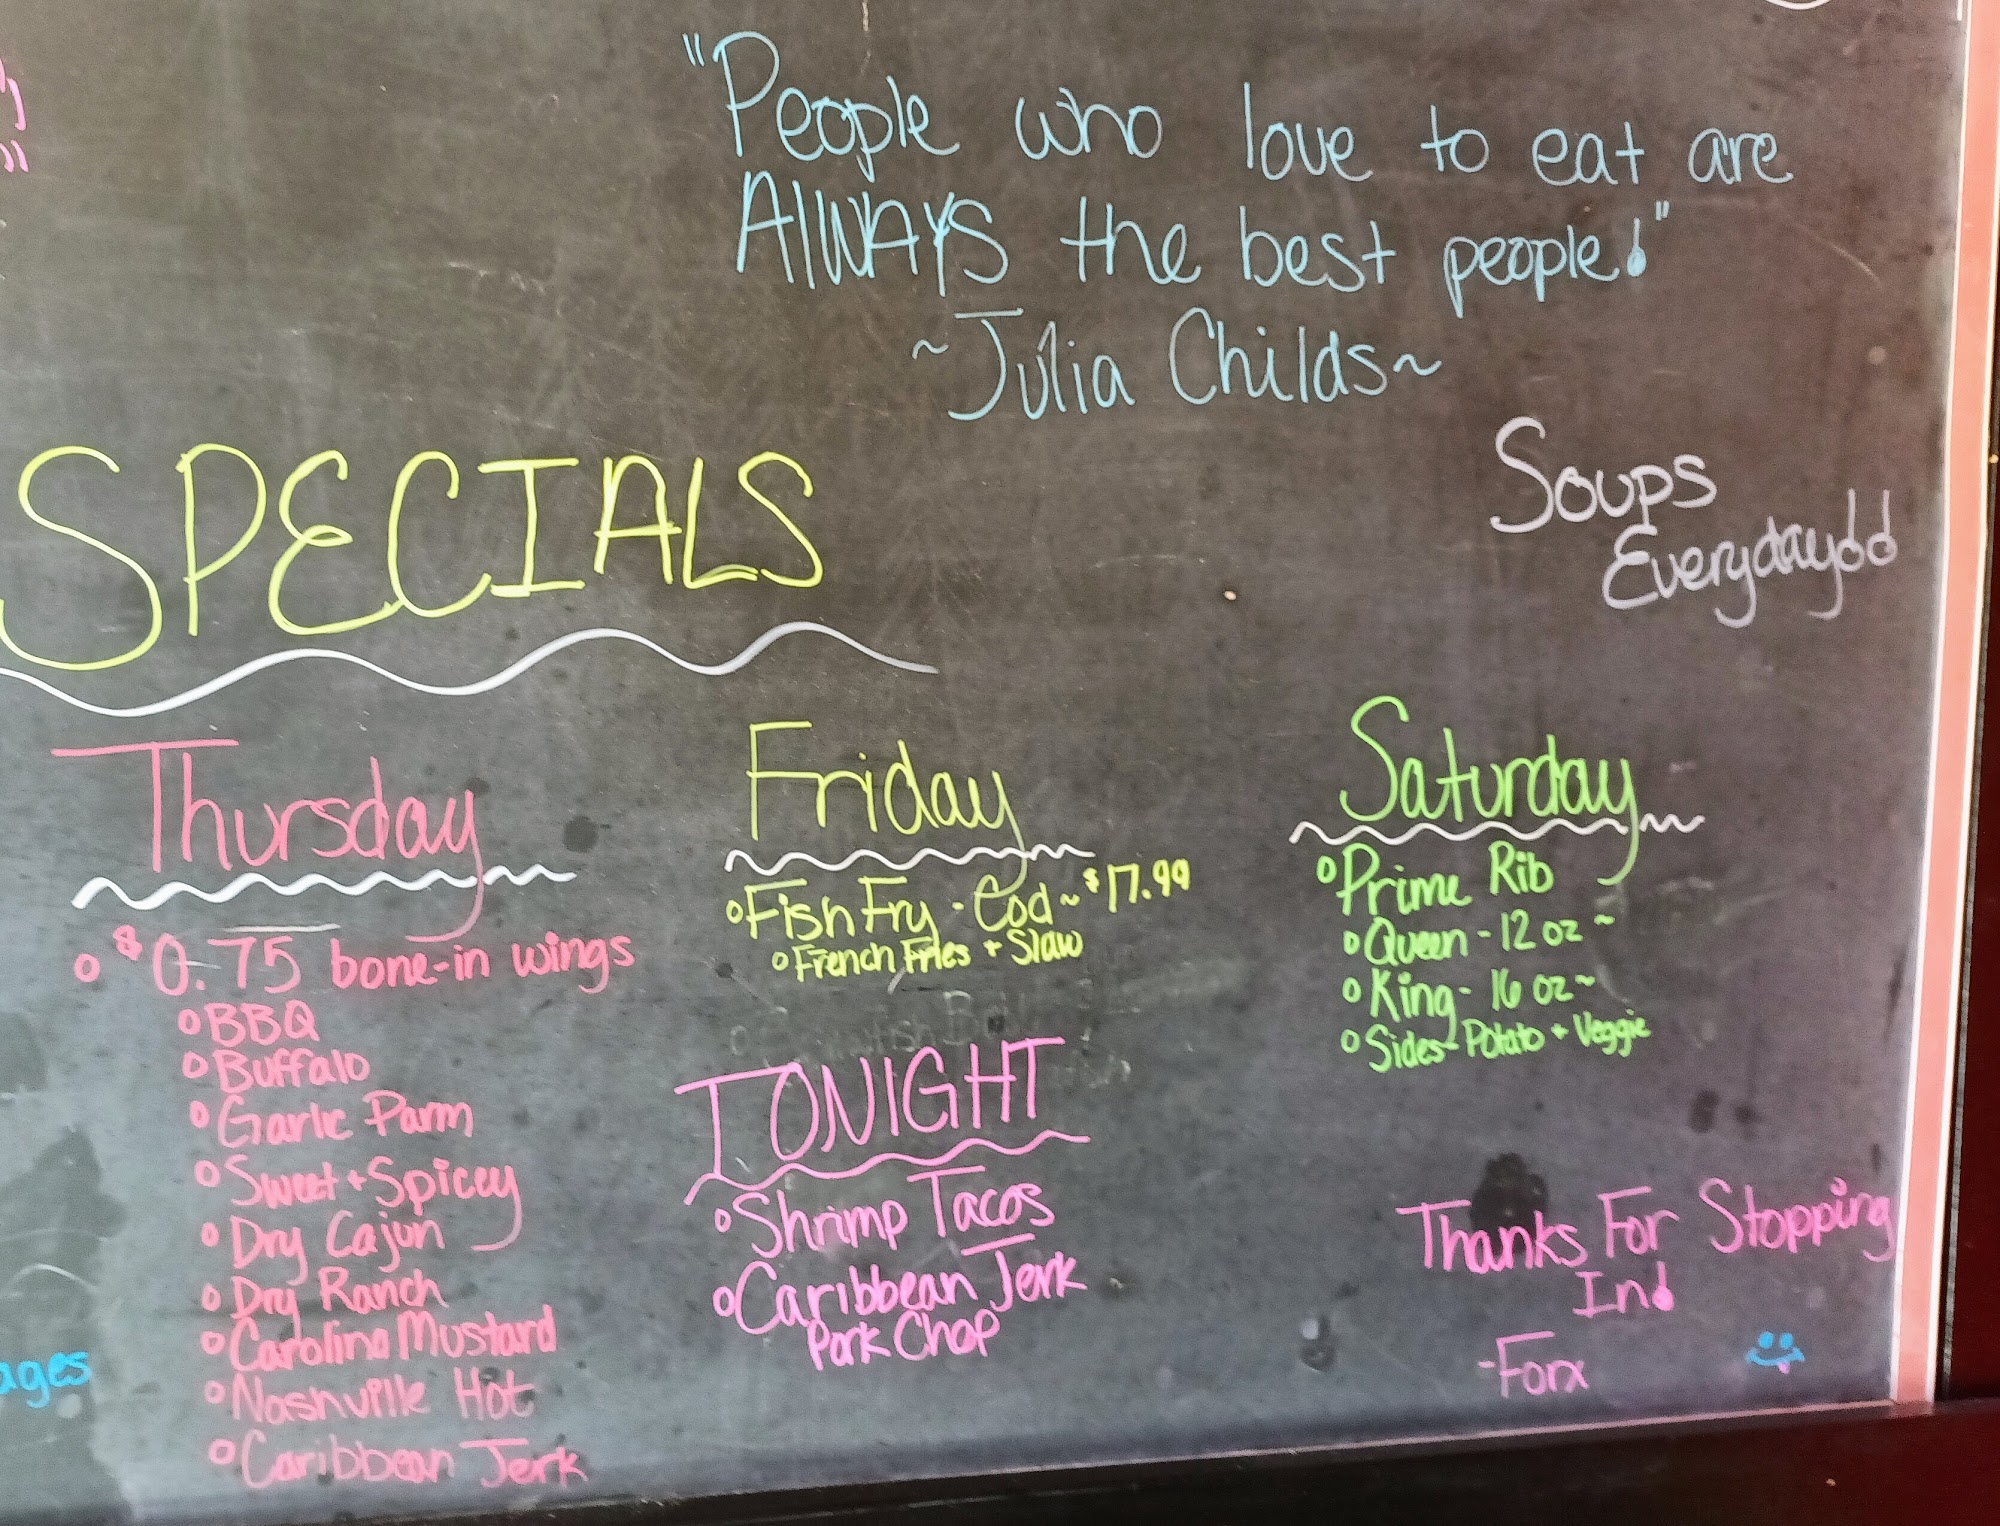 "People who love to eat are
AlWAYS the best people!"
~Julia Childs~
SPECIALS
Soups
Everyday!!
Thursday
$0.75 bone-in wings
BBQ
Buffalo
Garlic Parm
Sweet + Spicey
Dry Cajun
Dry Ranch
Carolina Mustard
Nashville Hot
Caribbean Jerk
Friday
Fish Fry - Cod ~ $17.99
French Fries + Slaw
TONIGHT
Shrimp Tacos
Caribbean Jerk
Pork Chop
Saturday
Prime Rib
Queen - 12 oz ~
King - 16 oz ~
Sides - Potato + Veggie
Thanks For Stopping
In!
-Forx
ages